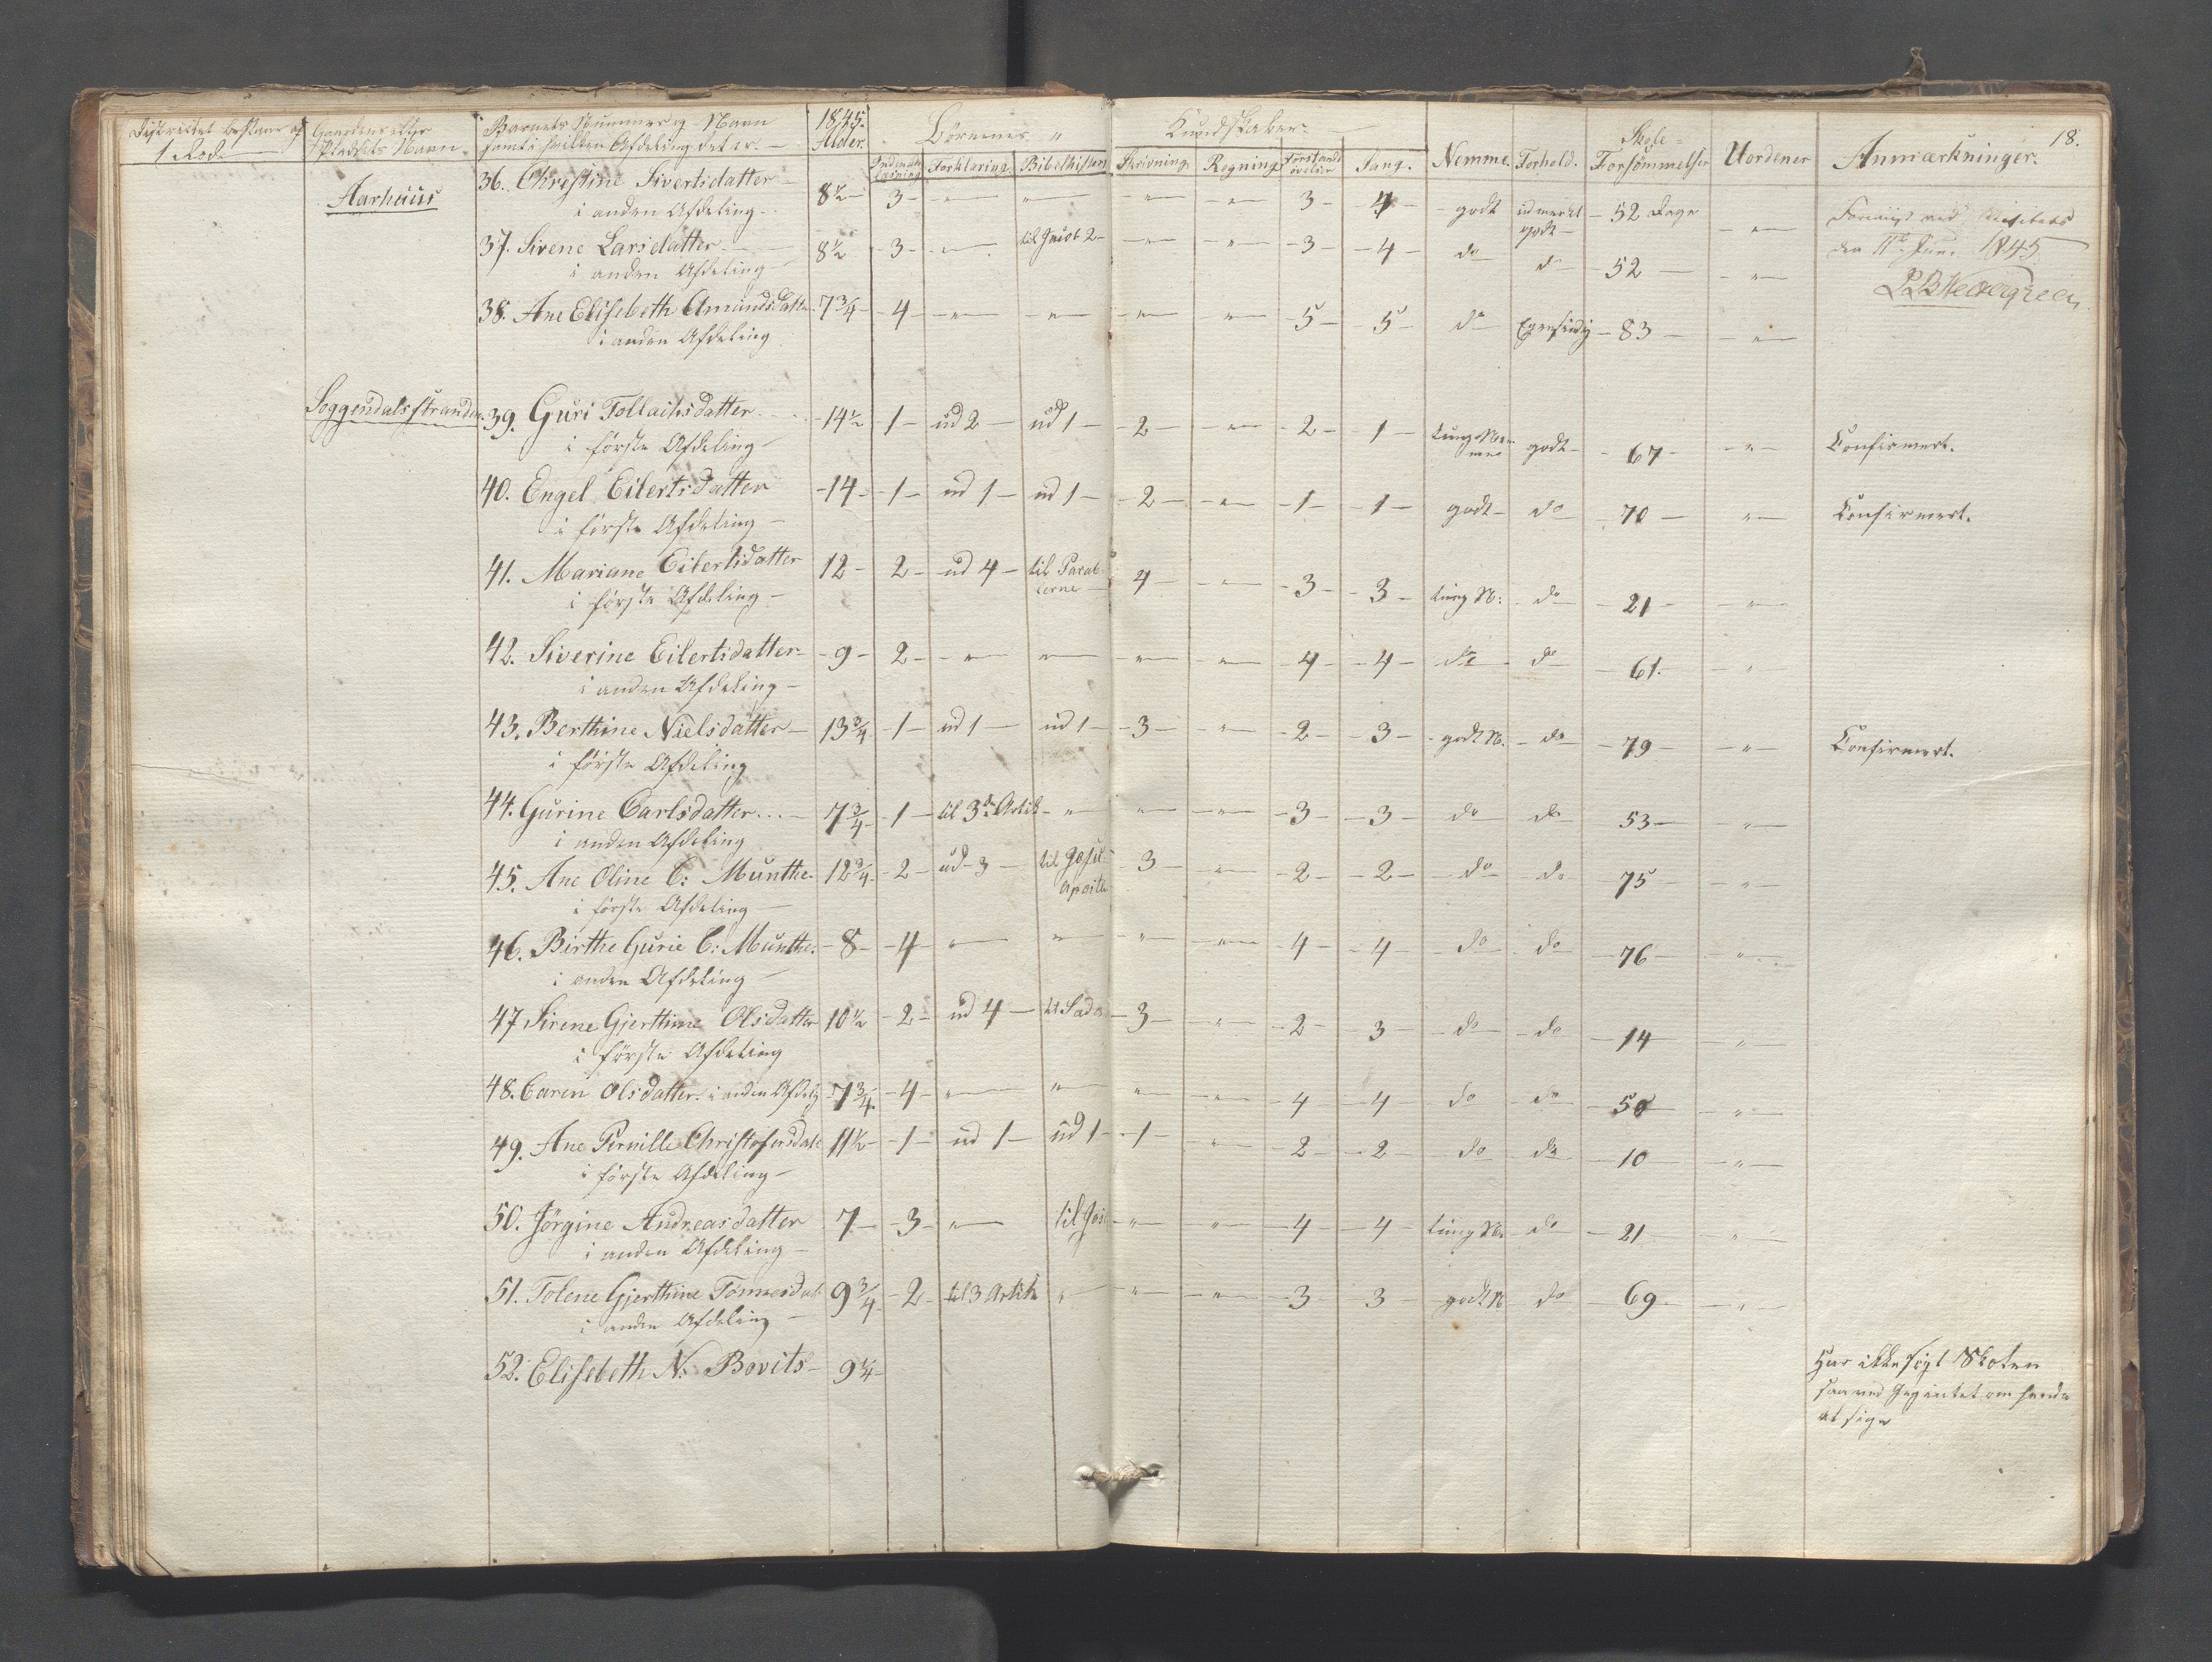 Districtet bestaar af
1 Rode
Gaardens eller
Pladsets Navn.
Barnets Nummer og Navn
samt i hvilken Afdeling det er.
1845.
Alder.
Børnenes "
Kundskaber.
Indenads
læsning
Forklaring
Bibelhistorie
Skrivning
Regning
Forstands
øvelser
Sang.
Nemme.
Forhold.
Skole-
Forsømmelser
Uordener
Anmærkninger.
18.
Aarhuus
36. Christine Sivertsdatter 8½ 3 " " " " 3 4 godt udmerket godt 52 Dage "
i anden Afdeling
37. Sirene Larsdatter 8½ 3 " til Jacob 2 " " 3 4 do do 52 "
i anden Afdeling
den 11te Juni 1845
38. Ane Elisebeth Amunds Datter 7¾ 4 " " " " 5 5 do Egensindig 83 "
i anden Afdeling
Soggendalsstranden
39. Guri Tollachsdatter 14½ 1 ud 2 ud 1 2 " 2 1 tung Nemme godt 67 " Confirmert.
i første Afdeling
40. Engel Eilertsdatter 14 1 ud 1 ud 1 2 " 1 1 godt do 70 " Confirmert.
i første Afdeling
41. Mariane Eilertsdatter 12 2 ud 4 til Parablerne 4 " 3 3 tung N: do 21 "
i første Afdeling
42. Siverine Eilertsdatter 9 2 " " " " 4 4 do do 61 "
i anden Afdeling
43. Berthine Nielsdatter 13¾ 1 ud 1 ud 1 3 " 2 3 godt N. do 79 " Confirmert.
i første Afdeling
44. Gurine Carlsdatter 7¾ 1 til 3die Artik " " " 3 3 do do 53 "
i anden Afdeling
45. Ane Oline C: Munthe 12¾ 2 ud 3 til Jesu Apostle 3 " 2 2 do do 75 "
i første Afdeling
46. Birthe Gurie C: Munthe. 8 4 " " " " 4 4 do do 76 "
i anden Afdeling
47 Sirene Gjerttine Olsdatter 10½ 2 ud 4 3 " 2 3 do do 14 "
i første Afdeling
48. Caren Olsdatter. i anden Afdelg 7¾ 4 " " " " 4 4 do do 50 "
49. Ane Pernille Christofersdatt 11½ 1 ud 1 ud 1 1 " 2 2 do do 10 "
i første Afdeling
50. Jørgine Andreasdatter 7 3 " " " 4 4 tung N. do 21 "
i anden Afdeling
51. Tolene Gjerthine Tønnesdat 9¾ 2 til 3 Artikl " " " 3 3 godt N do 69 "
i anden Afdeling
52. Elisebeth N: Bovits 9¼
Har ikke søgt Skolen
saa ved Jeg intet om hende
at sige